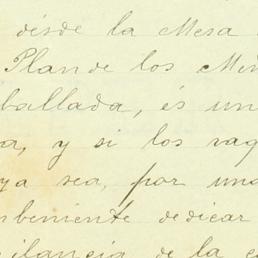 désde la Mesa
Plan de los
ballada, és un
a, y si los vaq
ya sea, por una
nbeniente dedicar
gilancia de la c